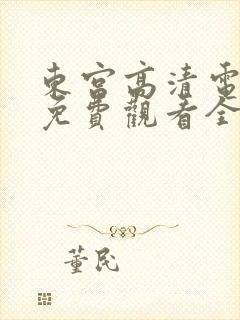 東宮高清電
免費觀看全
董民